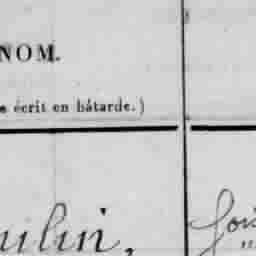 NOM.
e écrit en bâtarde.)
ulin,